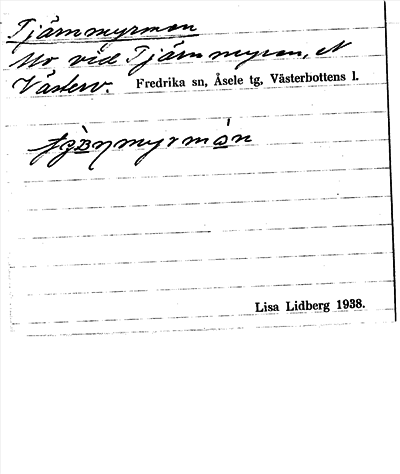 Tjärnmyrmon
Mo vid Tjärnmyran, N
Västerv. Fredrika sn, Åsele tg, Västerbottens l.
Lisa Lidberg 1938.